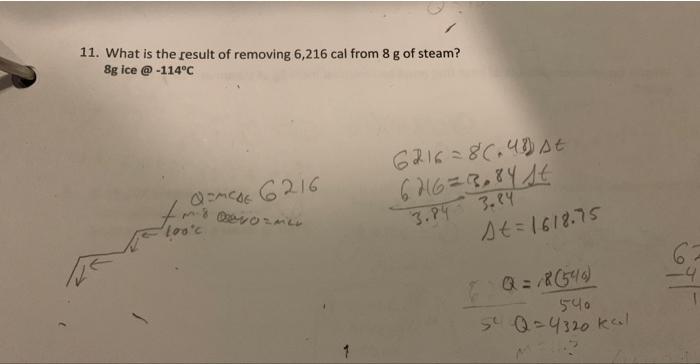 11. What is the result of removing 6,216 cal from 8 g of steam?
8g ice @ -114°C
6216 = 8(.48) Δt
6216 = 3.84 Δt
3.84 3.84
Δt = 1618.75
Q = mcΔt 6216
m=8
100°c
Q = 8(540)
540
Q = 4320 kcal
6
-4
1
1